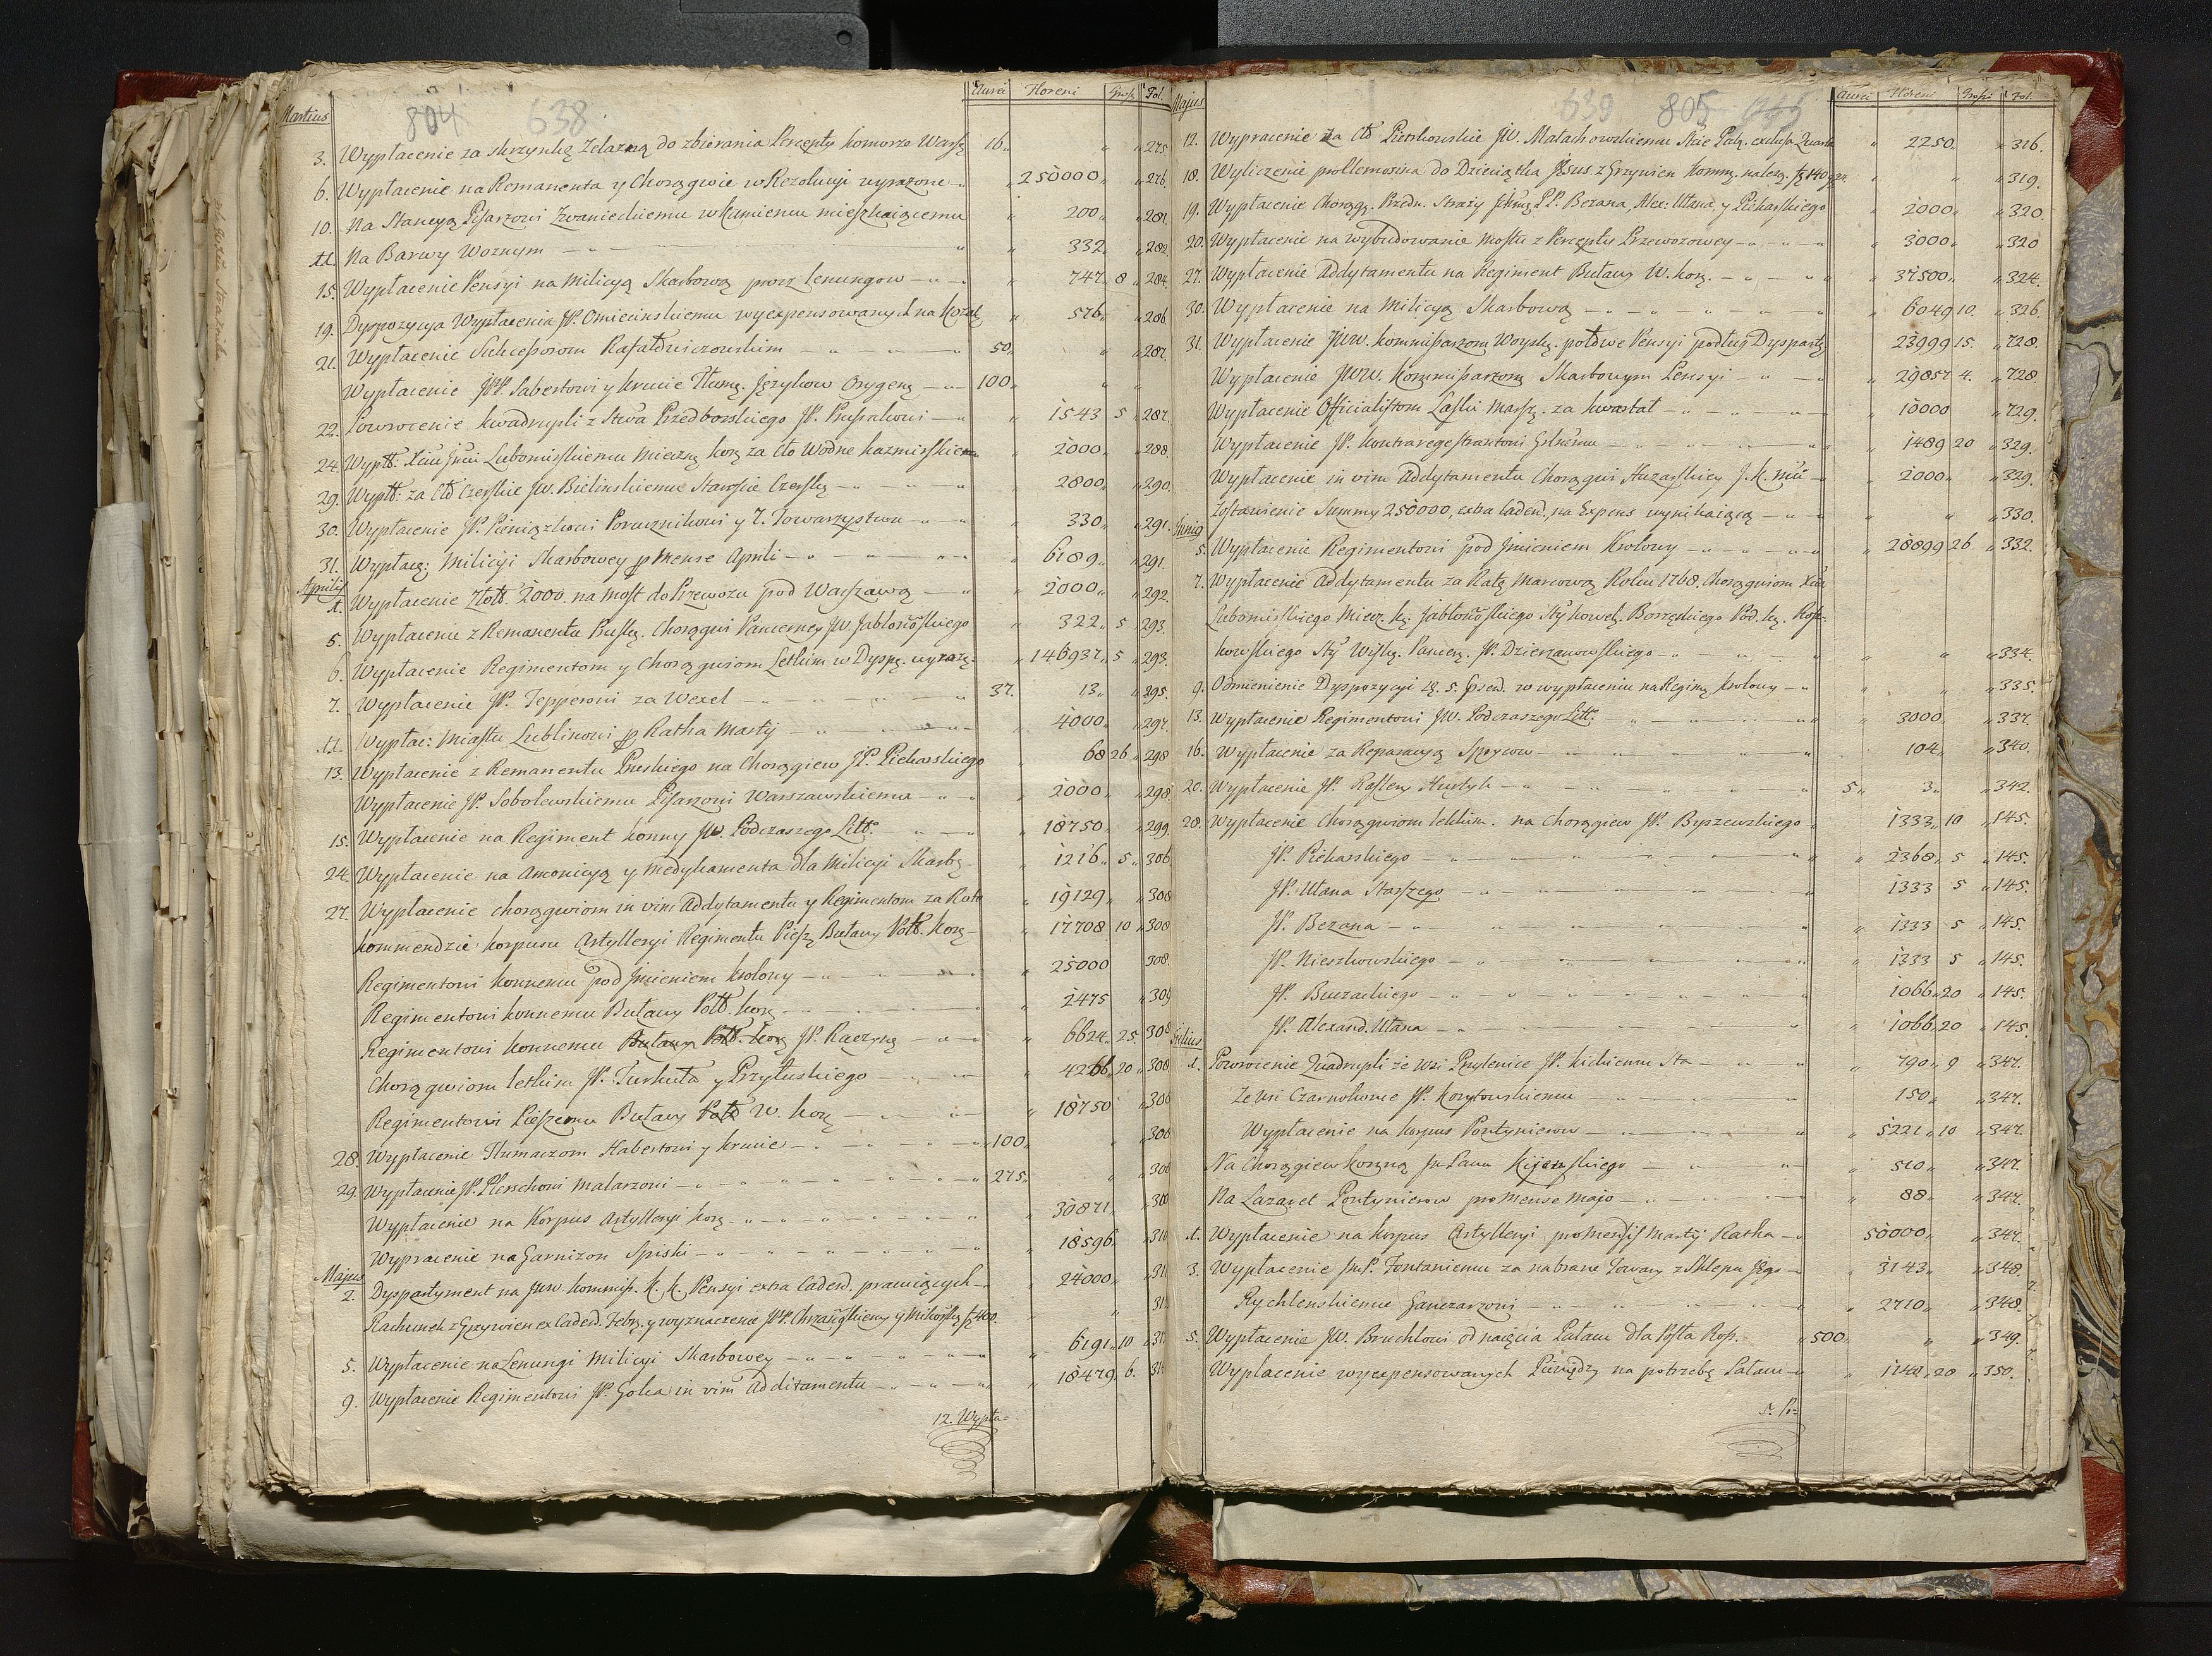 804 638
Aurei Floreni Gross. Fol.
Martius
3. Wypłacenie za skrzynką Zelazną do zbierania Percepty komorze Warsz. 16 275.
6. Wypłacenie na Remanenta y Chorągwie w Rezolucyi wyrażone 250000 276.
10. Na Stancyą Pisarzowi Zwanieckiemu w Kamieniu mieszkaiącemu 200 281.
11. Na Barwy Woznym 332 282.
15. Wypłacenie Pensyi na Milicyą Skarbową procz Lenungow 747 8 284.
19. Dyspozycya Wypłacenia JP. Omiecinskiemu wyexpensowanych na Kozak. 576 286.
21. Wypłacenie Sukcessorom Rafałowiczowskim 50 287.
Wypłacenie JPP. Habertowi y Krucie Tłumą. Językow 100
22. Powrocenie kwadrupli z Stwa Przedborskiego JP. 1543 5 287.
24. Wypłt. Xciu Jmci Lubomirskiemu Mieczną kor. za Cło Wodne kazmirskie 2000 288.
29. Wypłt: za Cło Czerskie JW. Bielinskiemu Staroscie Czersk. 2800 290.
30. Wypłacenie JP. Pieniążkowi Porucznikowi y 7. Towarzystwu 330 291.
31. Wypłacą: Milicyi Skarbowey p Mense Aprili 6189 291.
Aprilis
1. Wypłacenie Złott. 2000. na most do Przewozu pod Warszawą 2000 292.
5. Wypłacenie z Remanentu Chorągwi Pancerney JW. Jabłonoskiego 322 5 293.
6. Wypłacenie Regimentom y Chorągwiom Letkim w Dyspą. wyrażą. 146937 5 293.
7. Wypłacenie JP. Tepperowi za Wexel 37. 13 295.
11. Wypłac: Miastu Lublinowi p Ratha Martij 4000 297.
13. Wypłacenie z Remanentu Pruskiego na Chorągiew JP. Piekarskiego 68 26 298
Wypłacenie JP. Sobolewskiemu Pisarzowi Warszawskiemu 2000 298.
15. Wypłacenie na Regiment konny JW. Podczaszego Litt. 18750 299.
24. Wypłacenie na Amonicyą y Medykamenta dla Milicyi Skarbą. 1216 5 306
27. Wypłacenie chorągwiom in vim Addytamentu y Regimentom za Ratę 19129 308
kommendzie korpusu Artylleryi Regimentu Piesz. Buławy Poll. kor. 17708 10 308
Regimentowi konnemu pod Jmieniem krolowy 25000 308.
Regimentowi konnemu Buławy Poll. kor. 2475 309
Regimentowi konnemu Buławy Poll. kor. JP. Raczyną 6624 25. 308
Chorągwiom letkim JP. Turkuła y Przyłuskiego 4266 20 308
Regimentowi Pieszemu Buławy Poll W. kor. 18750 308
28. Wypłacenie Tłumaczom Habertowi y krucie 100 308
29. Wypłacenie JP. Plerschowi Malarzowi 275. 308
Wypłacenie na Korpus Artylleryi kor. 30871 308
Wypłacenie na Garnizon Spiski 18596 310
Majus
2. Dyspartyment na JWW kommiss. K. K. Pensyi extra Cadend. pracuiących 24000 31
Rachunek z Grzywien ex Cadend. Febr. y wyznaczenie 400. 31
5. Wypłacenie na Lenungi Milicyi Skarbowey 6191 10 31
9. Wypłacenie Regimentowi JP. Golcza in vim Additamentu 18479 6. 31
12. Wypła-
639 805
Aurei Floreni Grossi Fol.
Majus
12. Wypłacenie za Cło Pietrkowskie JW. Małachowskiemu Stcie 2250 316.
18. Wyliczenie pro Elemosina do Dzieciątka Jesus z Grzywien Kommą. należą. 140 319.
19. Wypłacenie Chorągą. Przedn. Straży Jkmci PP. Bezana, Alex: Ułana, y Piekarskiego 2000 320.
20. Wypłacenie na wybudowanie mostu z Percepty Przewozowey 3000 320
27. Wypłacenie Addytamentu na Regiment Buławy W. kor. 37500 324.
30. Wypłacenie na Milicyą Skarbową 6049 10. 326.
31. Wypłacenie JWW. kommissarzom Woysk. połowe Pensyi podług Dyspart. 23999 15. 728.
Wypłacenie JWW. kommissarzom Skarbowym Pensyi 29857 4. 728.
Wypłacenie Officialistom Laski Marsz. za kwartał 10000 729.
Wypłacenie JP. Kontraregestrantowi 1489 20 329.
Wypłacenie in vim Addytamentu Chorągwi Huzarskiey J. k. mci 2000 329.
Zostawienie Summy 250000, extra Cadend., na Expens wynikaiącą 330.
Junij
5. Wypłacenie Regimentowi pod Jmieniem Krolowy 28899 26. 332.
7. Wypłacenie Addytamentu za Ratę Marcową Roku 1768. Chorągwiom Xcia
Lubomirskiego Miecz. kr. Jabłonoskiego Sty kowel. Borzęckiego Pod. kr. Rost-
kowskiego Sty Wisk. Pancerą. JP. Dzierzanowskiego 334.
9. Odmienienie Dyspozycyi w wypłaceniu na Regimą krolowy 335.
13. Wypłacenie Regimentowi JW. Podczaszego Litt. 3000 337.
16. Wypłacenie za Reparacyą 104 340.
20. Wypłacenie JP. 5 3 342.
28. Wypłacenie Chorągwiom lekkim. na Chorągiew JP. Byszewskiego 1333 10 145.
JP. Piekarskiego 2368 5 145.
JP. Ułana Starszego 1333 5 145.
JP. Bezana 1333 5 145.
JP. Nieszkowskiego 1333 5 145.
JP. Buczackiego 1066 20 145.
JP. Alexand. Ułana 1066 20 145
Julius
1. Powrocenie Quadrupli ze Wsi JP. kickiemu Sta 790 9 347.
Ze Wsi Czarnołowie JP. Korytowskiemu 150 347.
Wypłacenie na korpus Pontynierow 5221 10 347.
Na Chorągiew 510 347.
Na Lazaret Pontynierow pro Mense Majo 88 347.
1. Wypłacenie na korpus Artylleryi pro Mensis Martij Ratha 50000 347.
3. Wypłacenie JmP. Fontaniemu za nabrane Towary z Sklepu Jego 3143 348.
Rychlenskiemu Ganczarzowi 2710 348.
5. Wypłacenie JW. Bruchlowi od naięcia Pałacu dla Posła Ross. 500 349.
Wypłacenie wyexpensowanych Pieniędzy na potrzebę Pałacu 20 350.